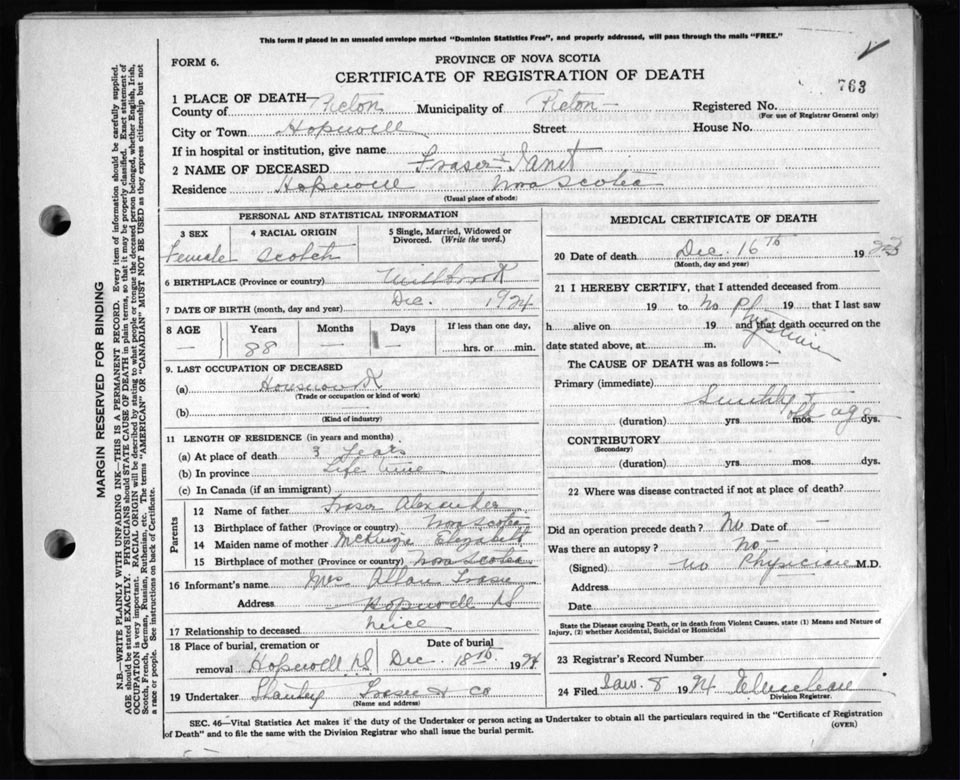 This form if placed in an unsealed envelope marked "Dominion Statistics Free", and properly addressed, will pass through the mails "FREE."
FORM 6.
PROVINCE OF NOVA SCOTIA
CERTIFICATE OF REGISTRATION OF DEATH
763
1 PLACE OF DEATH—
County of Pictou Municipality of Pictou Registered No.
(For use of Registrar General only)
City or Town Hopewell Street House No.
If in hospital or institution, give name
2 NAME OF DECEASED Fraser Janet
Residence Hopewell Nova Scotia
(Usual place of abode)
PERSONAL AND STATISTICAL INFORMATION
3 SEX 4 RACIAL ORIGIN 5 Single, Married, Widowed or Divorced. (Write the word.)
Female Scotch
6 BIRTHPLACE (Province or country) Millbrook
7 DATE OF BIRTH (month, day and year) Dec. 1924
8 AGE Years Months Days If less than one day,
— 88 — hrs. or min.
9. LAST OCCUPATION OF DECEASED
(a) Housework
(Trade or occupation or kind of work)
(b)
(Kind of industry)
11 LENGTH OF RESIDENCE (in years and months)
(a) At place of death 3 Years
(b) In province Life time
(c) In Canada (if an immigrant)
Parents
12 Name of father Fraser Alexander
13 Birthplace of father (Province or country) Nova Scotia
14 Maiden name of mother Elizabeth
15 Birthplace of mother (Province or country) Nova Scotia
16 Informant's name Mrs Allan Fraser
Address Hopewell NS
17 Relationship to deceased Neice
18 Place of burial, cremation or removal Hopewell NS Date of burial Dec. 18th 192
19 Undertaker Fraser & Co
(Name and address)
MEDICAL CERTIFICATE OF DEATH
20 Date of death Dec. 16th 1923
(Month, day and year)
21 I HEREBY CERTIFY, that I attended deceased from
19 to No Physician 19 that I last saw
h alive on 19 and that death occurred on the
date stated above, at m.
The CAUSE OF DEATH was as follows:—
Primary (immediate)
old age
(duration) yrs. mos. dys.
CONTRIBUTORY
(Secondary)
(duration) yrs. mos. dys.
22 Where was disease contracted if not at place of death?
Did an operation precede death? No Date of —
Was there an autopsy? No—
(Signed) no Physician M.D.
Address
Date
State the Disease causing Death, or in death from Violent Causes, state (1) Means and Nature of
Injury, (2) whether Accidental, Suicidal or Homicidal
23 Registrar's Record Number
24 Filed Jan. 8 1924
Division Registrar.
SEC. 46—Vital Statistics Act makes it the duty of the Undertaker or person acting as Undertaker to obtain all the particulars required in the "Certificate of Registration
of Death" and to file the same with the Division Registrar who shall issue the burial permit.
(OVER)
MARGIN RESERVED FOR BINDING
N.B.—WRITE PLAINLY WITH UNFADING INK—THIS IS A PERMANENT RECORD. Every item of information should be carefully supplied.
AGE should be stated EXACTLY. PHYSICIANS should STATE CAUSE OF DEATH in plain terms, so that it may be properly classified. Exact statement of
OCCUPATION is very important. RACIAL ORIGIN will be described by stating to what people or tongue the deceased person belonged, whether English, Irish,
Scotch, French, German, Russian, Ruthenian, etc. The terms "AMERICAN" OR "CANADIAN" MUST NOT BE USED as they express citizenship but not
a race or people. See instructions on back of Certificate.